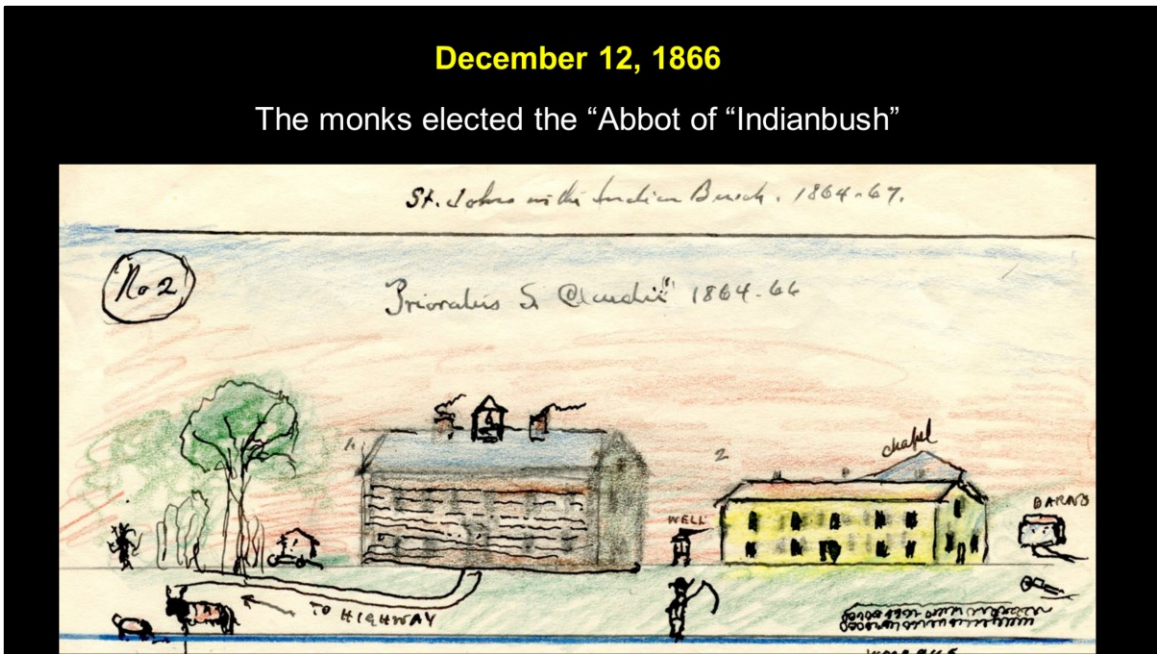 December 12, 1866
The monks elected the “Abbot of “Indianbush”
St. Johns in the Indian Bush. 1864-67.
No 2
Prioratus S. Claudii" 1864-66
1.
2
chapel
WELL
BARNS
TO HIGHWAY